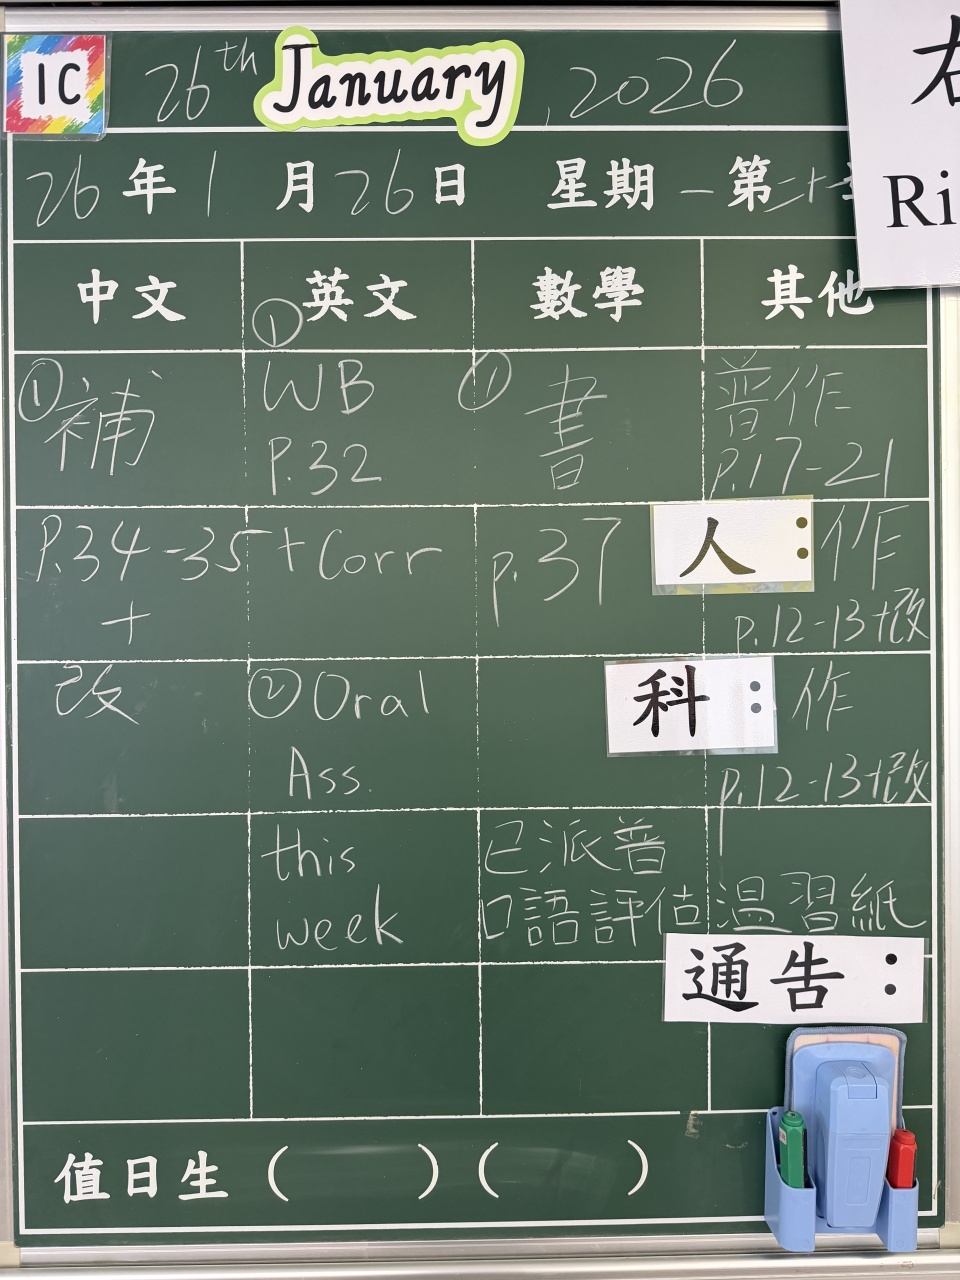 1C 26th January, 2026
右
Ri
26年1月26日 星期一 第二十
中文 英文 數學 其他
① 補
P.34-35
+
改
① WB
P.32
+Corr
② Oral
Ass.
this
week
① 書
p.37
普作
p.17-21
人：作
p.12-13+改
科：作
p.12-13+改
已派普
口語評估溫習紙
通告：
值日生（ ）（ ）